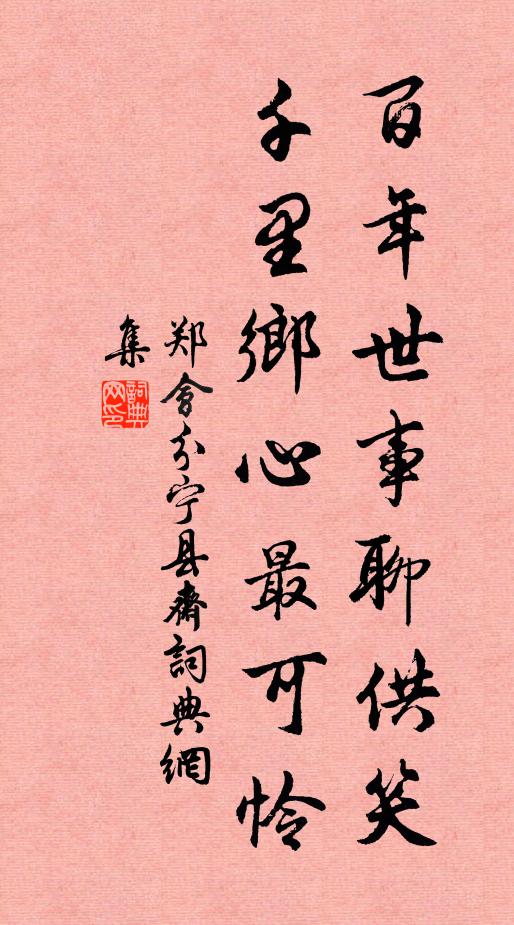 百年世事聊供笑
千里鄉心最可怜
郑會分宁县齋詞典網
集
詞典
网印